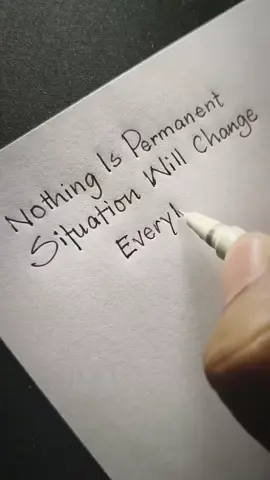 Nothing Is Permanent
Situation Will Change
Every